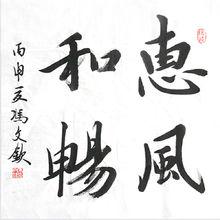 惠風
和暢
丙申夏馮文欽